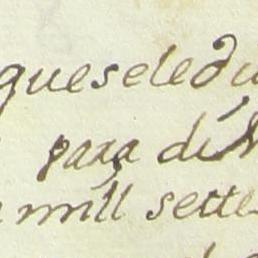 queseledu
para di
mill sette